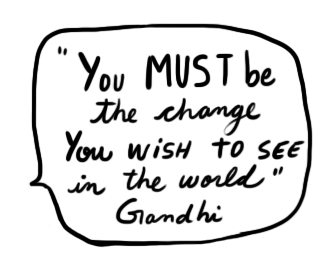 "You MUST be
the change
You WISH TO SEE
in the world"
Gandhi